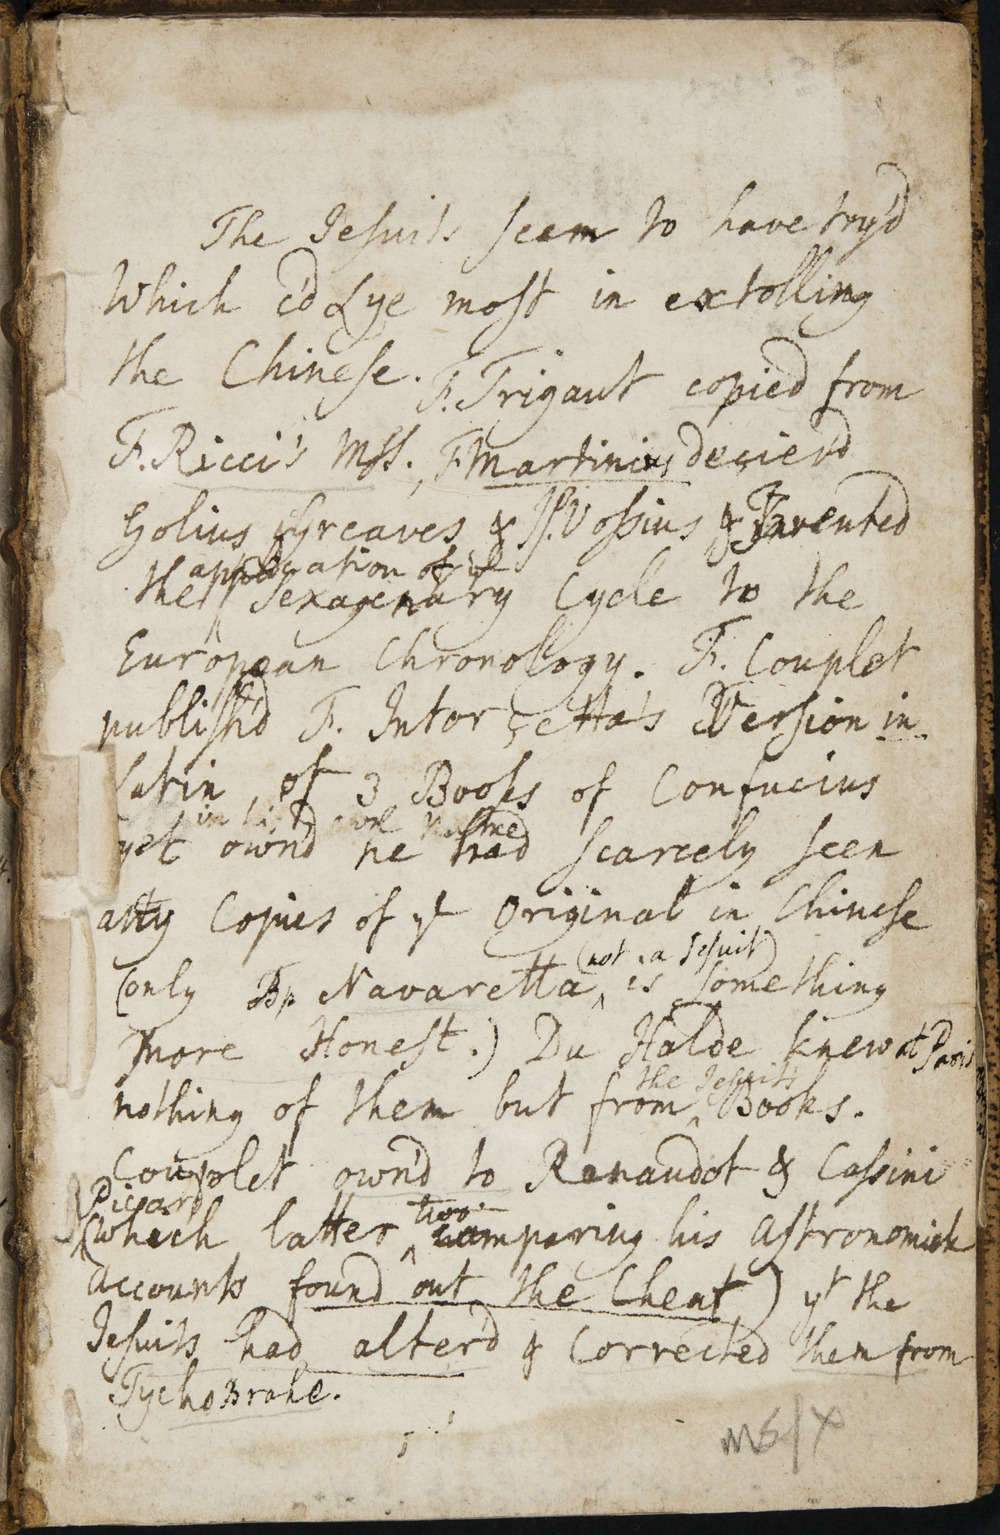 The Jesuits seem to have try'd
Which c'd Lye most in extolling
the Chinese. F. Trigaut copied from
F. Ricci's Mss., F Martinius deciev'd
Golius Greaves & Is. Vossius & Invented
application of ye
the Sexagenary Cycle to the
European Chronology. F. Couplet
publish'd F. Intorcetta's Version in
Latin of 3 Books of Confucius
in his own Name
yet own'd he had scarcely seen
any Copies of ye Original in Chinese
(not a Jesuit)
(only Bp Navaretta is something
more Honest.) Du Halde knew at Paris
the Jesuits
nothing of them but from Books.
Couplet own'd to Renaudot & Cassini
Piccard
two
(which latter comparing his Astronomick
Accounts found out the Cheat) yt the
Jesuits had alter'd & Corrected them from
Tycho Brahe.
MS/X